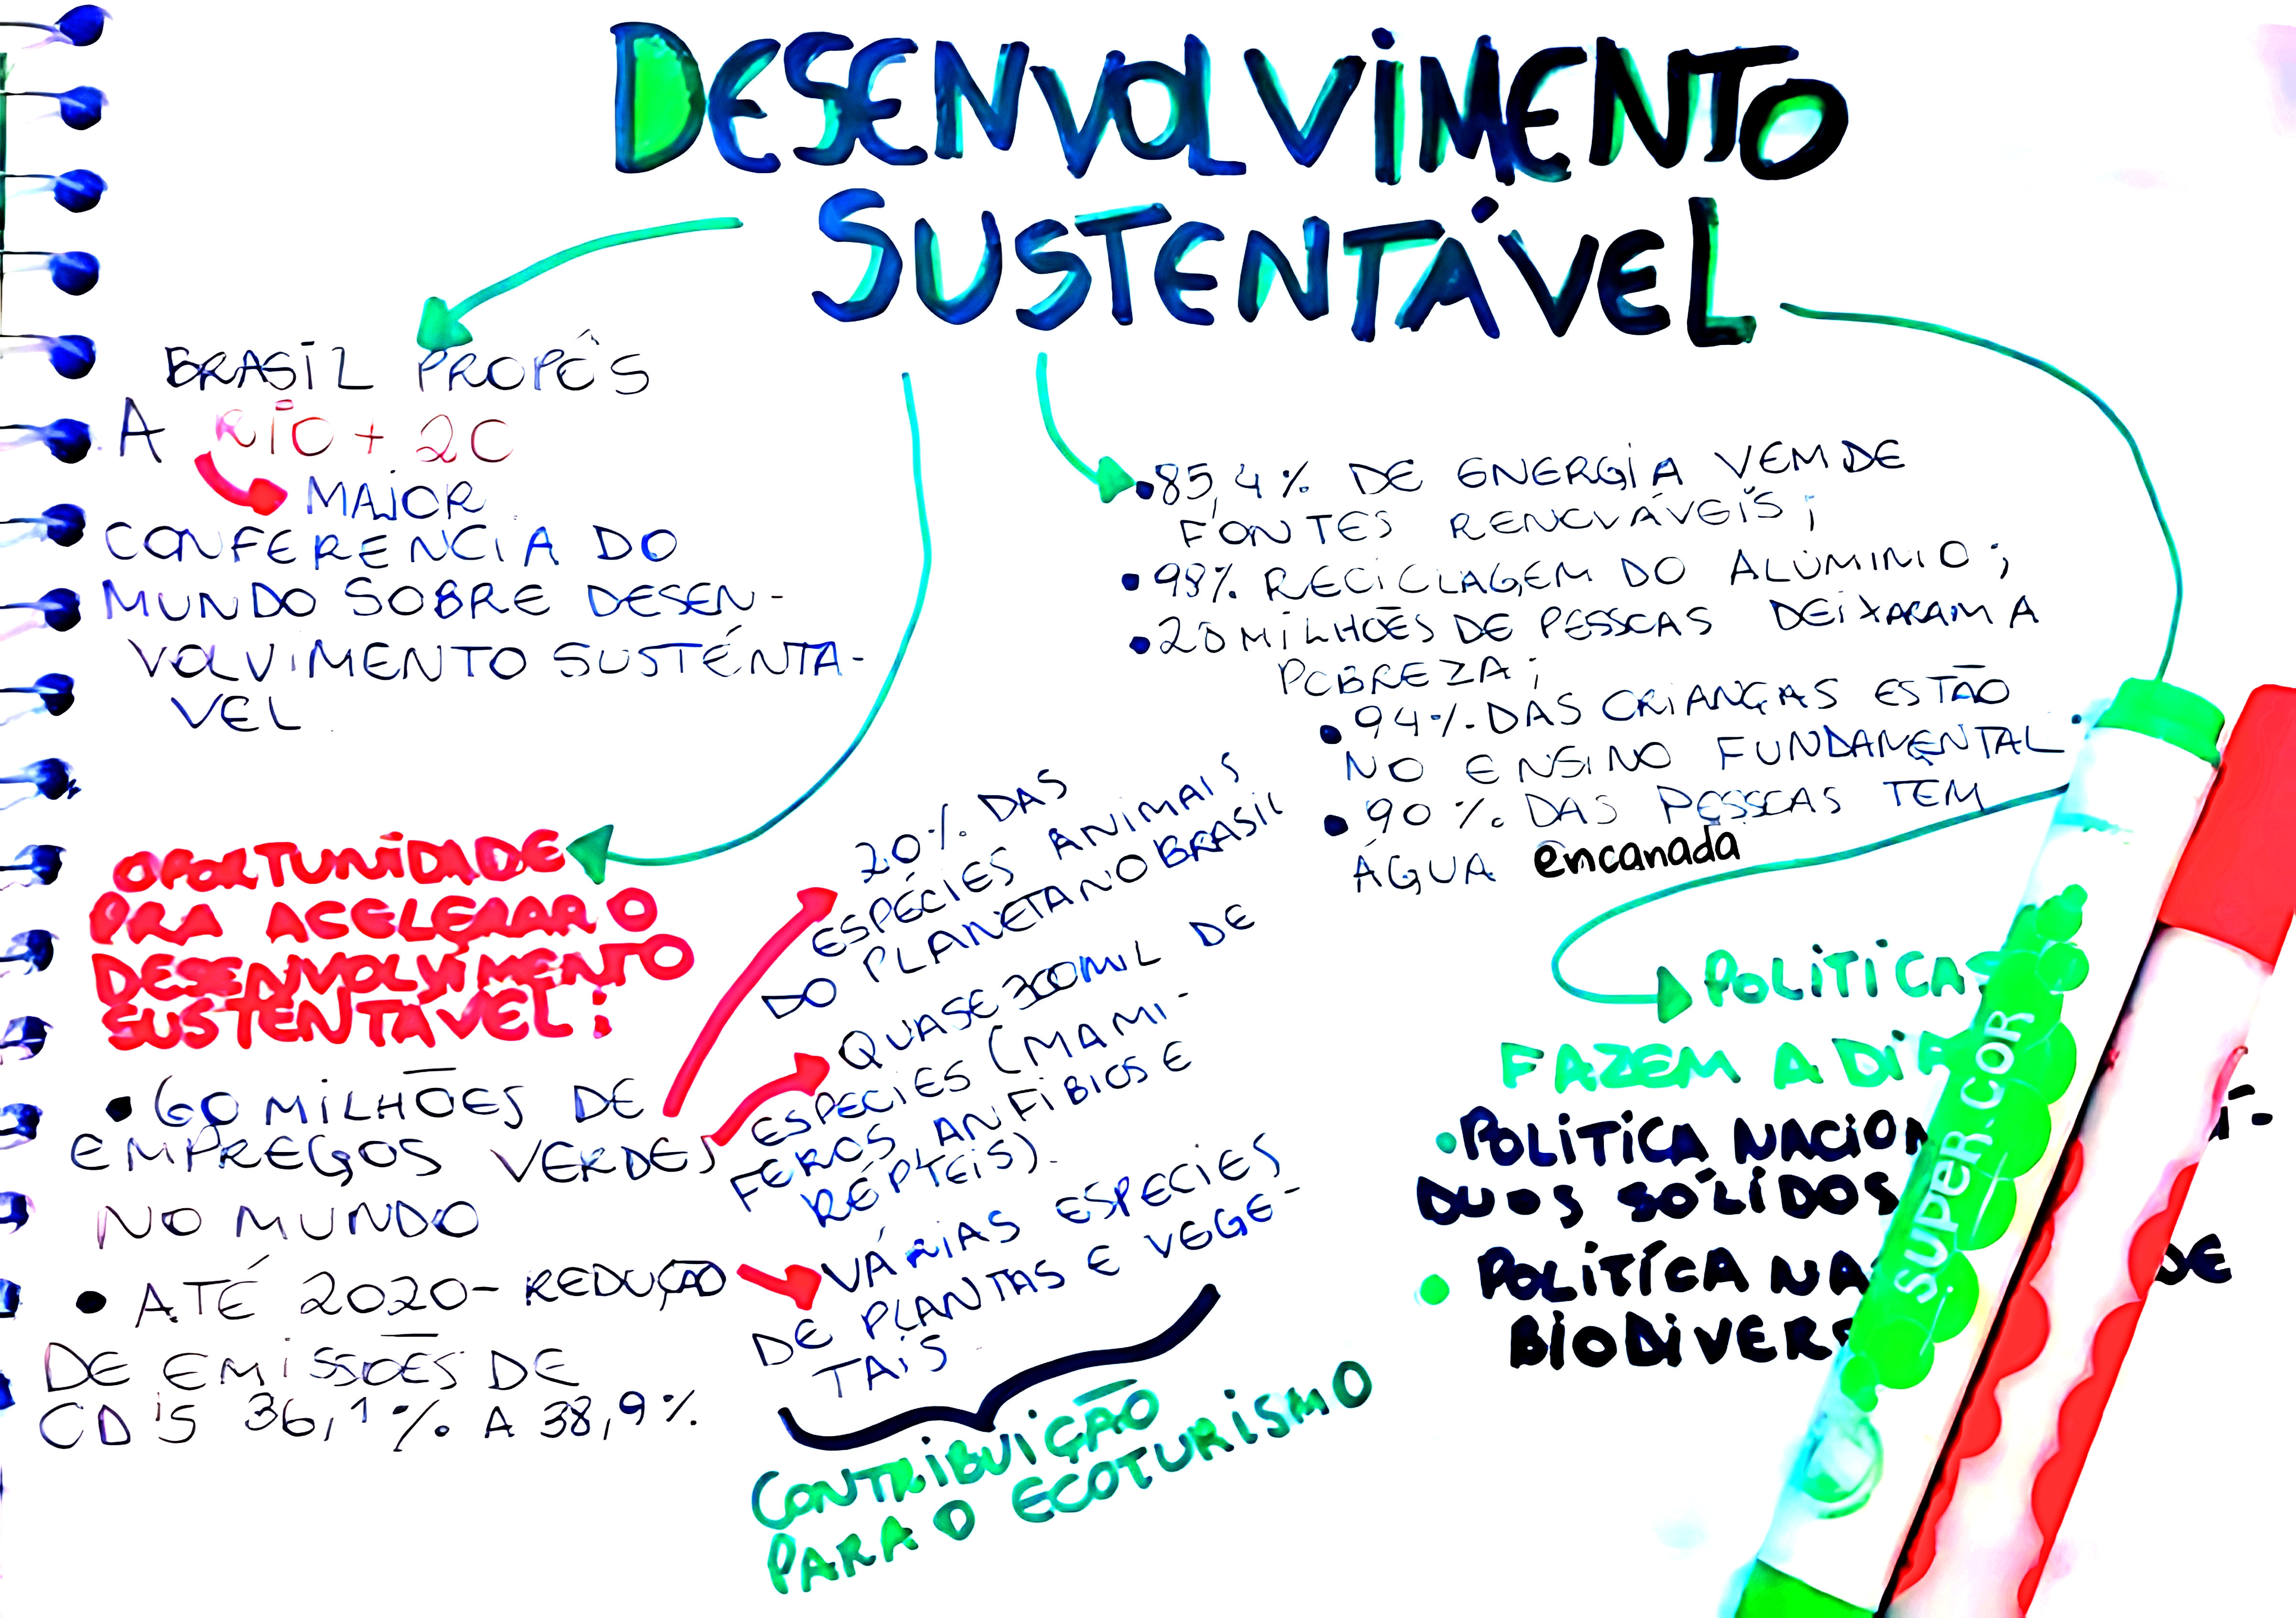 DESENVOLVIMENTO
SUSTENTÁVEL
BRASIL PROPÔS
A RIO + 20
MAIOR
CONFERENCIA DO
MUNDO SOBRE DESEN-
VOLVIMENTO SUSTÉNTA-
VEL
85,4% DE ENERGIA VEM DE
FONTES RENOVÁVEIS;
98% RECICLAGEM DO ALUMINIO;
20 MILHÕES DE PESSOAS DEIXARAM A
POBREZA;
94% DAS CRIANÇAS ESTÃO
NO ENSINO FUNDAMENTAL
90% DAS PESSOAS TEM
ÁGUA encanada
OPORTUNIDADE
PRA ACELERAR O
DESENVOLVIMENTO
SUSTENTÁVEL:
60 MILHÕES DE
EMPREGOS VERDES
NO MUNDO
ATÉ 2020 - REDUÇÃO
DE EMISSÕES DE
36,1% A 38,9%
20% DAS
ESPÉCIES ANIMAIS
DO PLANETA NO BRASIL
QUASE 300 MIL DE
ESPECIES (MAMI-
FEROS, ANFIBIOS E
RÉPTEIS).
VÁRIAS ESPECIES
DE PLANTAS E VEGE-
TAIS
CONTRIBUIÇÃO
PARA O ECOTURISMO
FAZEM A
POLITICA
DUOS SÓLIDOS
POLITÍCA DE
SUPER COR